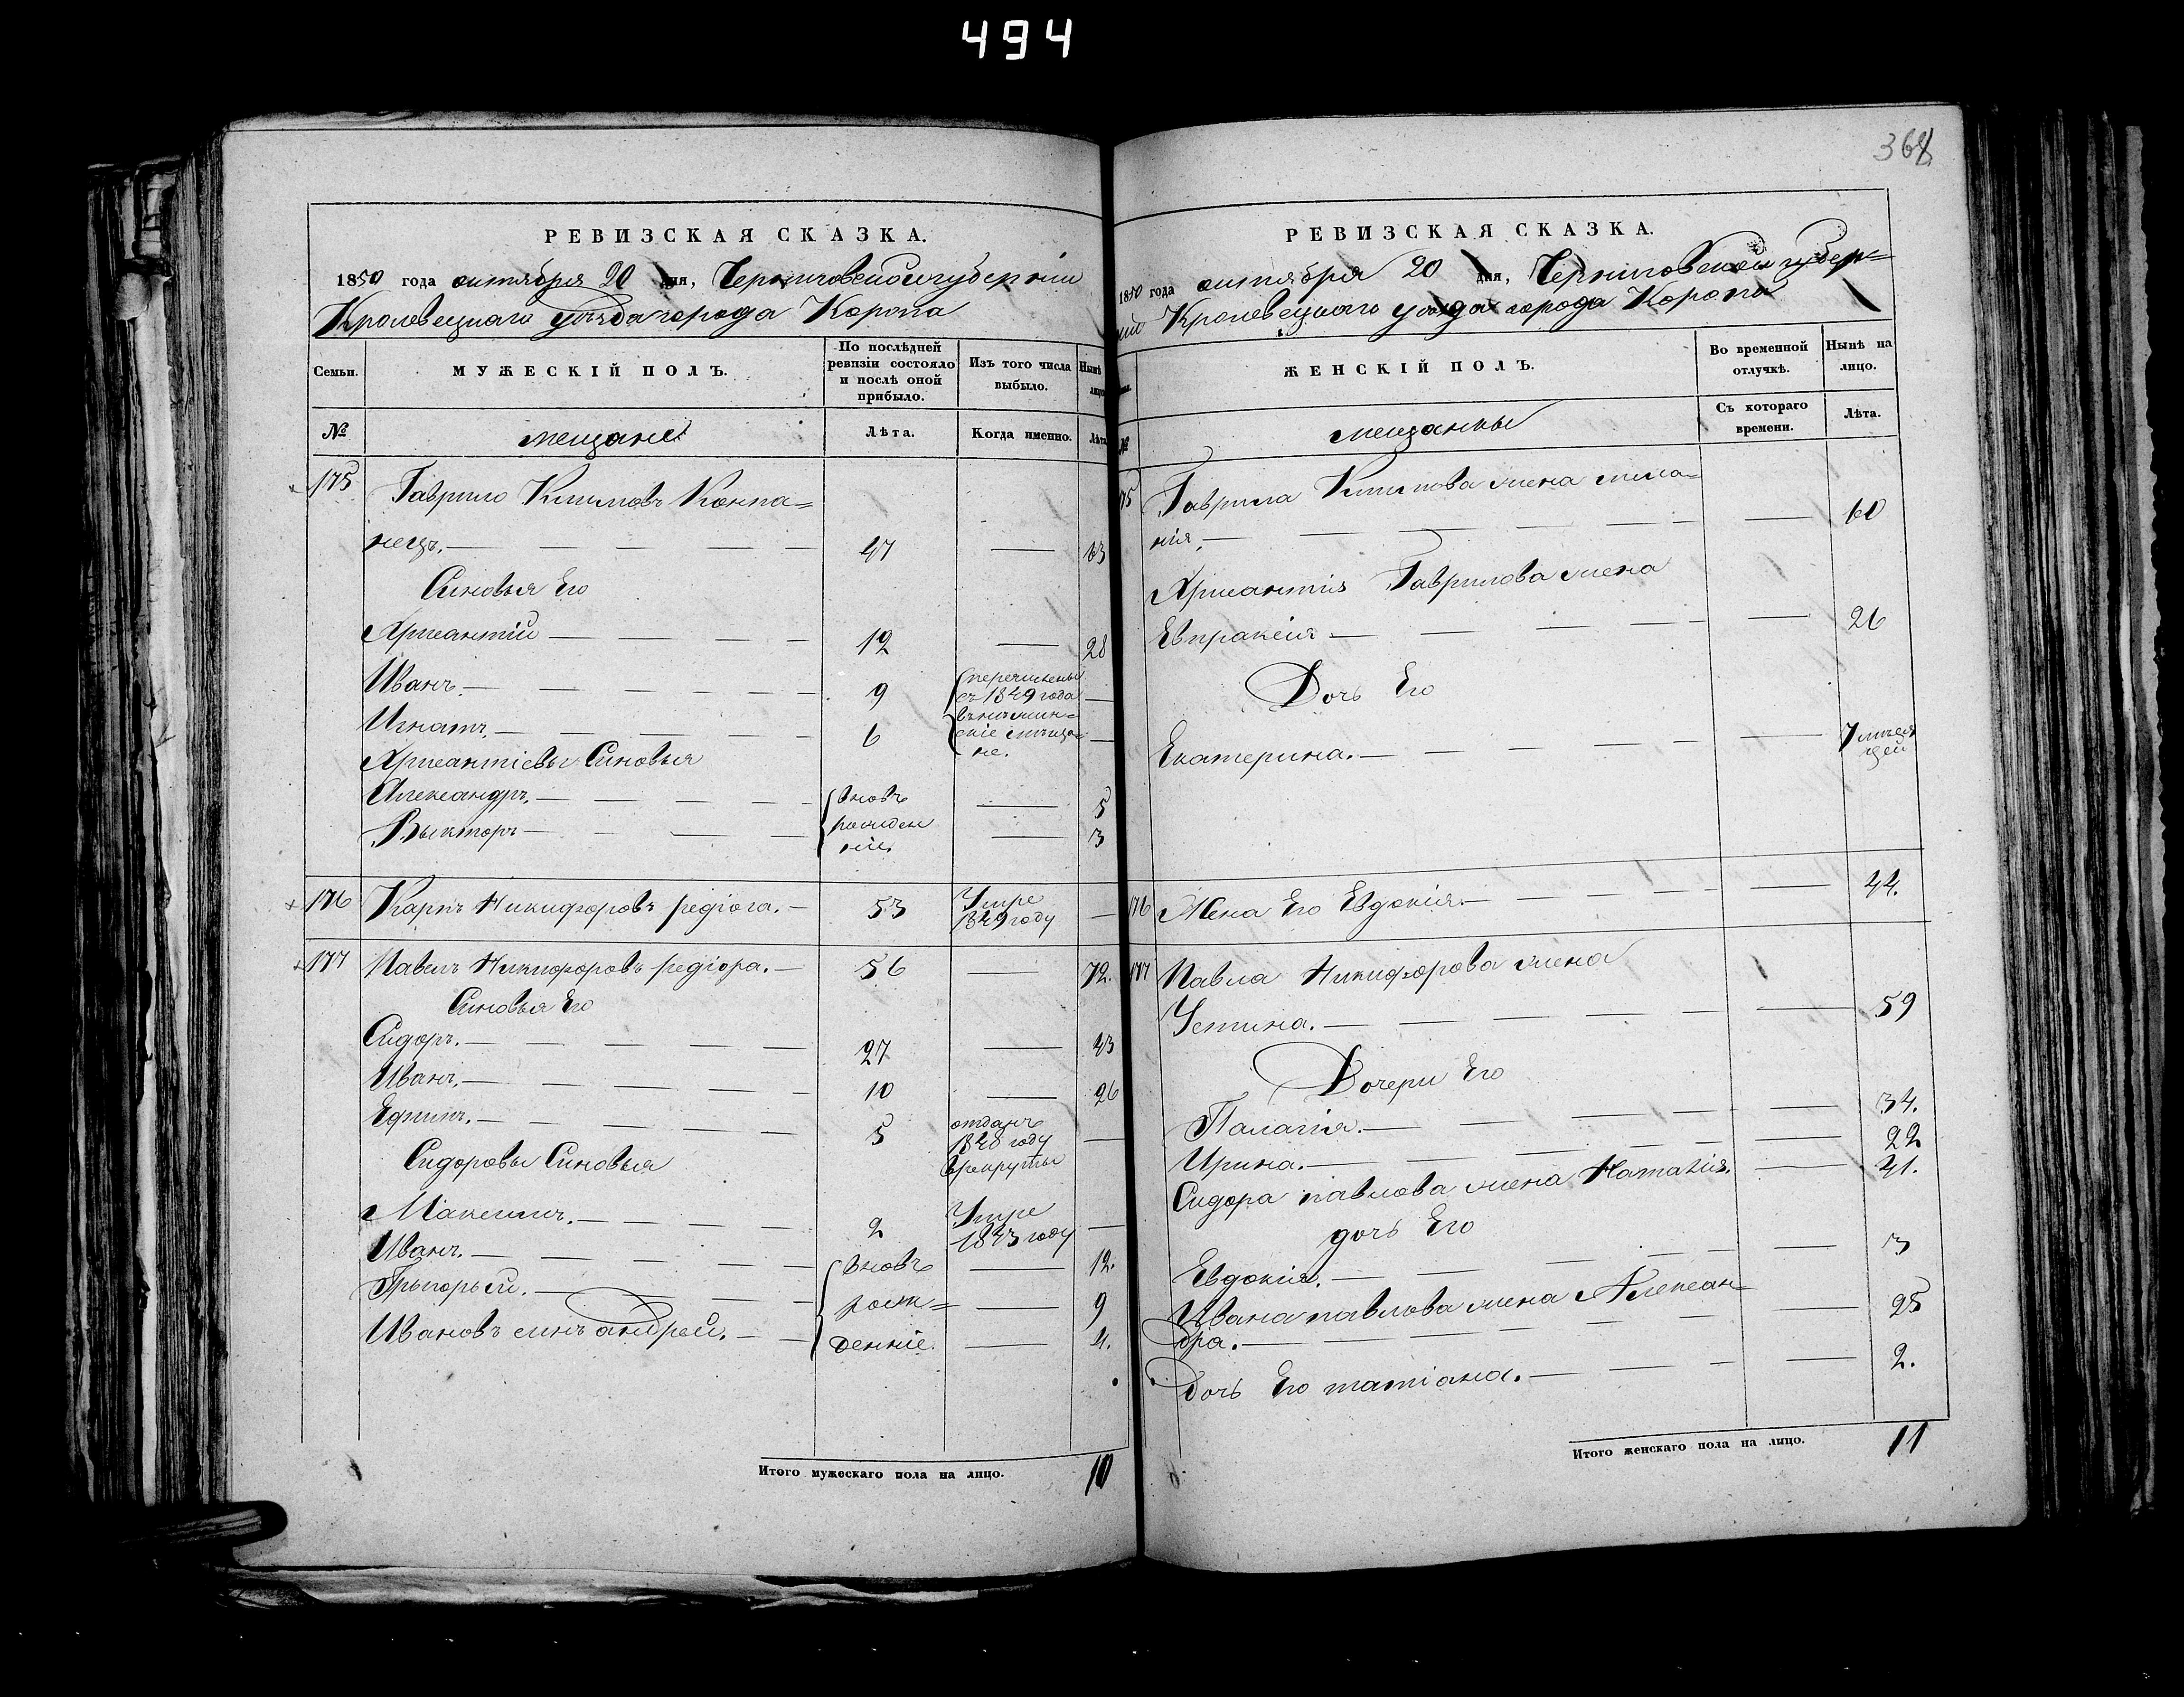 494
368
РЕВИЗСКАЯ СКАЗКА.
1850 года октября 20 дня, Черниговской губерніи
Кролевецкаго уѣзда города Коропа
Семьи.
МУЖЕСКІЙ ПОЛЪ.
По послѣдней
ревизіи состояло
и послѣ оной
прибыло.
Изъ того числа
выбыло.
Нынѣ
лицо
№
мещане
Лѣта.
Когда именно.
Лѣта
175
Гаврило Климовъ Компа=
нецъ. 47 63
Синовья Его
12 28
Иванъ. 9
перечислены
съ 1849 года
Игнатъ. 6
не.
Синовья
Александръ. вновь 5
Выкторъ 3
176 Карпъ Никифоровъ 53 Умре
1849 году
177 Павелъ Никифоровъ 56 72.
Синовья Его
Сидоръ. 27 43
Иванъ. 10 26
Ефимъ. 5 отданъ
1840 году
врекруты
Сидоровы Синовья
Максимъ. 2 Умре
1843 году
Иванъ. вновь 12.
Грыгорый. рож= 9
Ивановъ синъ андрей. денніе. 4.
Итого мужескаго пола на лицо. 10
РЕВИЗСКАЯ СКАЗКА.
1850 года октября 20 дня, Черниговской губер=
ніи Кролевецкаго уезда города Коропа
ЖЕНСКІЙ ПОЛЪ.
Во временной
отлучкѣ.
Нынѣ на
лицо.
№
мещанкы
Съ котораго
времени.
Лѣта.
75 Гаврила Климова жена мила=
нія. 60
Гаврилова жена
Евпраксія 26
Дочь Его
Екатерина. 7 мѣся
цей
176 Жена Его Евдокія. 44.
177 Павла Никифорова жена
Устина. 59
Дочери Его
Палагія. 34.
Ирина. 22
Сидора павлова жена Наталія. 41.
дочь Его
Евдокія. 3
Ивана павлова жена Алексан=
дра. 25
Дочь Его татіана. 2.
Итого женскаго пола на лицо. 11